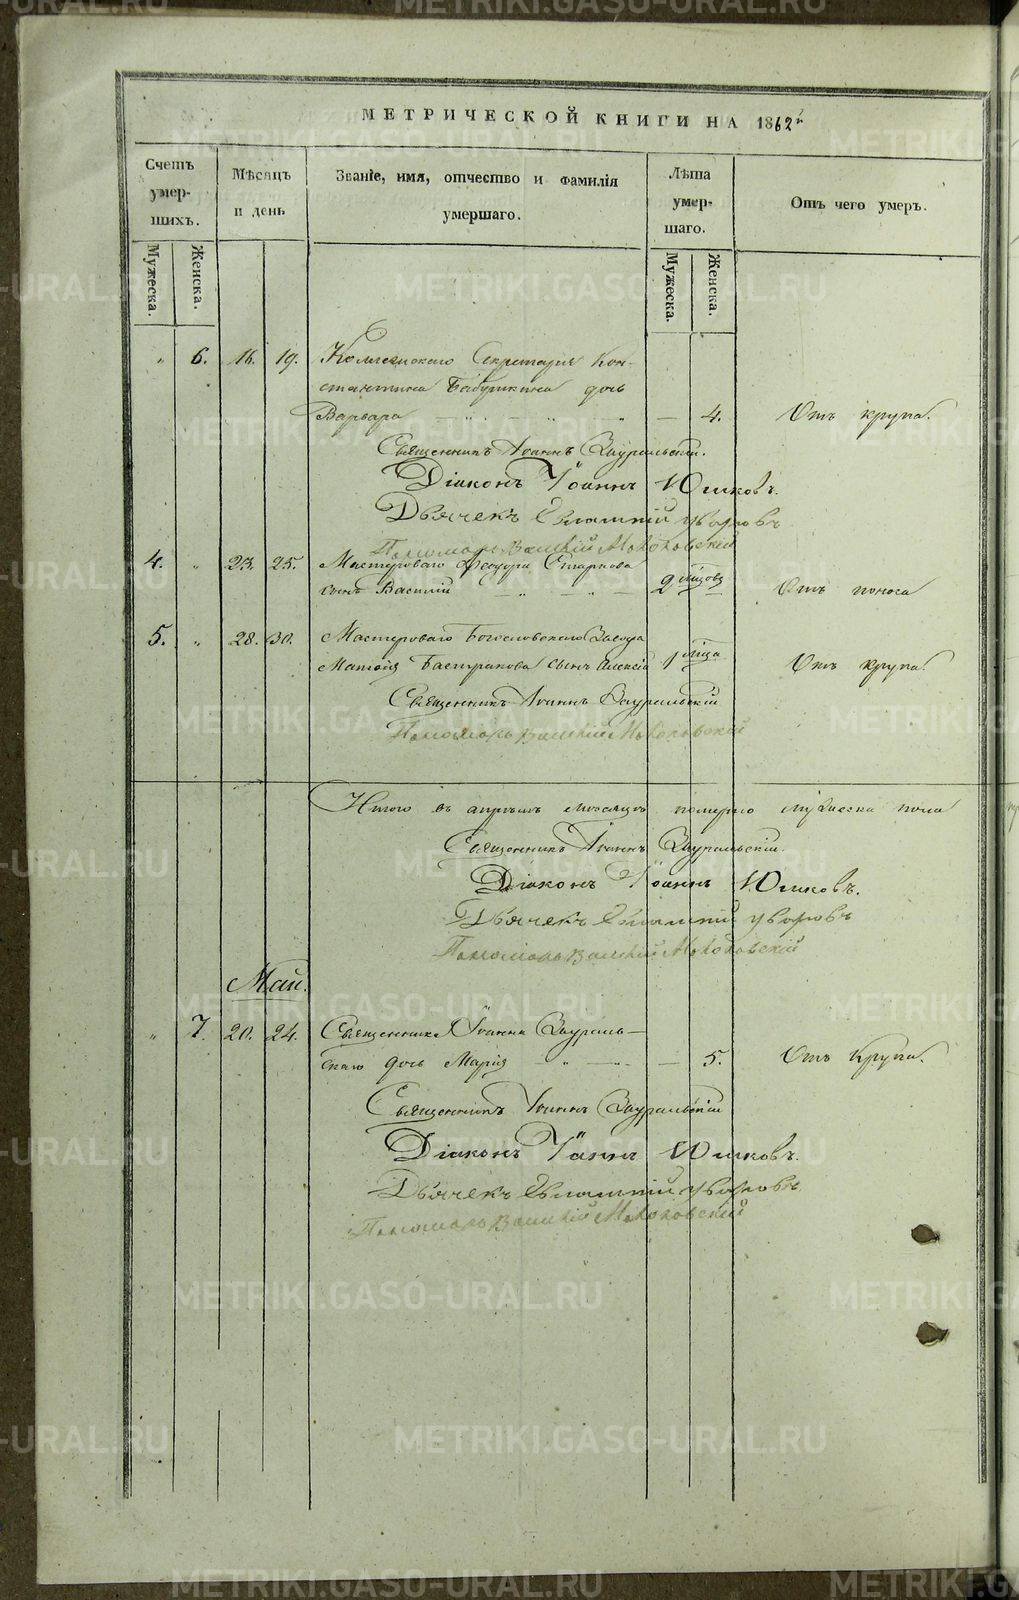 МЕТРИЧЕСКОЙ КНИГИ НА 1862й
Счетъ умер- шихъ.
Мѣсяцъ и день
Званіе, имя, отчество и фамилія умершаго.
Лѣта умер- шаго.
Отъ чего умеръ.
Мужеска.
Женска.
Мужеска.
Женска.
" 6. 16. 19. Коллежскаго Секретаря Кон-
стантина Бабушкина дочь
Варвара — 4. Отъ крупа.
Священникъ Іоаннъ Зауральскій.
Діаконъ Іоаннъ Юшковъ.
Дьячекъ Евлампій Уваровъ
Пономарь
4. " 23. 25. Мастероваго Феодора Старкова
сынъ Василій — 2 мѣсяц. Отъ поноса
5. " 28. 30. Мастероваго Богословскаго Завода
Матѳія Бастракова сынъ Алексій 1 мѣсяца Отъ крупа.
Священникъ Іоаннъ Зауральскій
Пономарь
Итого въ апрѣлѣ мѣсяцѣ померло мужеска пола
Священникъ Іоаннъ Зауральскій.
Діаконъ Іоаннъ Юшковъ.
Дьячекъ Евлампій Уваровъ
Пономарь
Май.
" 7. 20. 24. Священника Іоанна Зураль-
скаго дочь Марія — 5. Отъ Крупа.
Священникъ Іоаннъ Зауральскій
Діаконъ Іоаннъ Юшковъ.
Дьячекъ Евлампій Уваровъ
Пономарь
METRIKI.GASO-URAL.RU